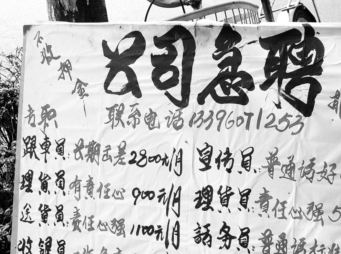 不收押金
公司急聘
有职 联系电话13396071253
跟车员 长期出差2800元/月 宣传员 普通话好
理货员 有责任心 900元/月 理货员 责任心强 5
送货员 责任心强 1100元/月 话务员 普通话标准
收银员